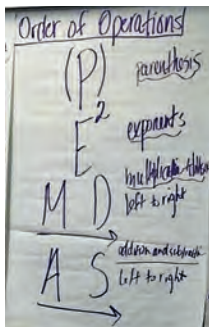 Order of Operations
(P) parenthesis
E² exponents
multiplication
M D left to right
addition and subtraction
A S left to right